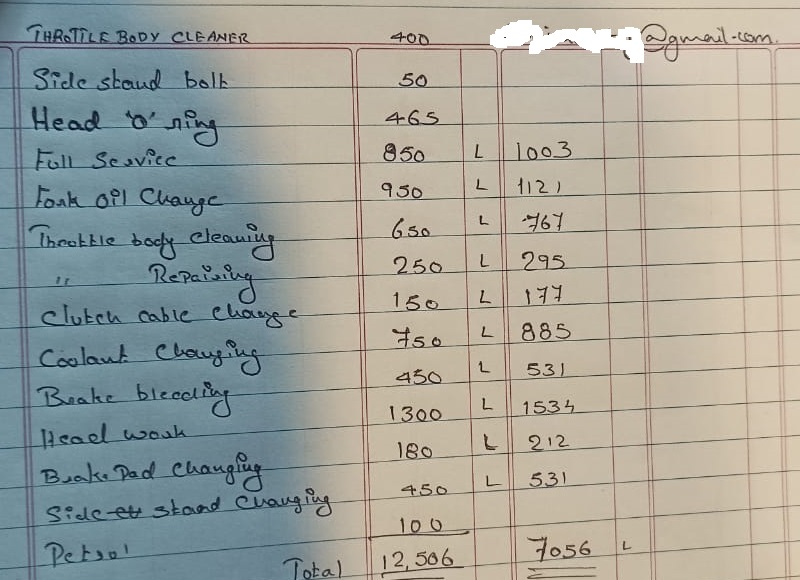 THROTTLE BODY CLEANER 400 @gmail.com
Side stand bolt 50
Head 'O' ring 465
Full Service 850 L 1003
Fork Oil Change 950 L 1121
Throttle body cleaning 650 L 767
" Repairing 250 L 295
Clutch cable change 150 L 177
Coolant Changing 750 L 885
Brake bleeding 450 L 531
Head work 1300 L 1534
Brake Pad Changing 180 L 212
Side stand Changing 450 L 531
Petrol 100
Total 12,506 7056 L